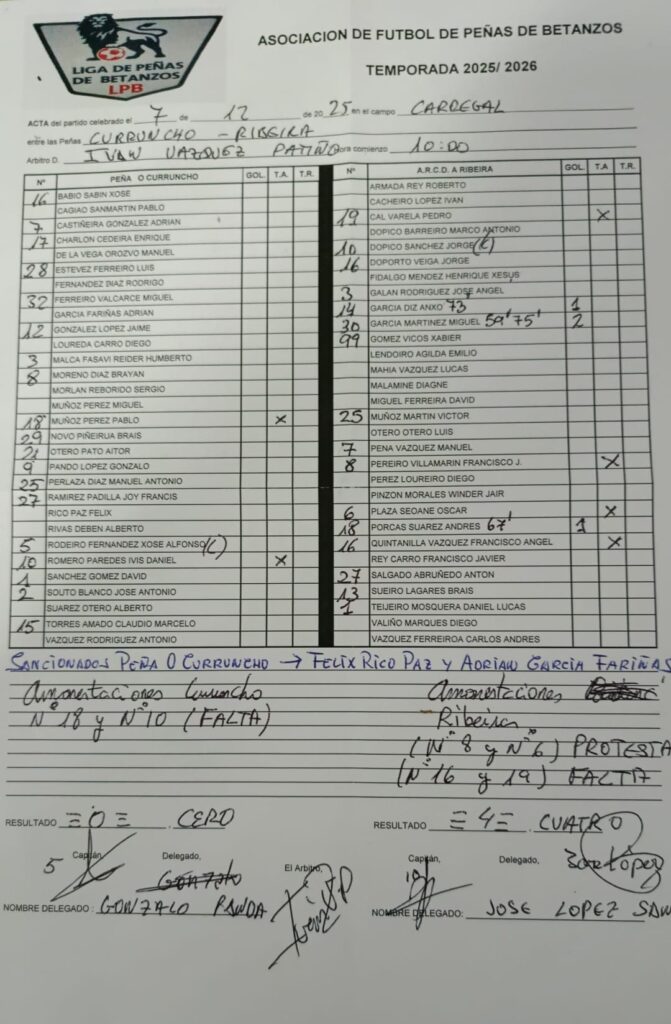 LIGA DE PEÑAS
DE BETANZOS
LPB
ASOCIACION DE FUTBOL DE PEÑAS DE BETANZOS
TEMPORADA 2025/ 2026
ACTA del partido celebrado el 7 de 12 de 2025 en el campo CARREGAL
entre las Peñas CURRUNCHO - RIBEIRA
Arbitro D. IVAN VAZQUEZ PATIÑO ora comienzo 10:00
Nº PEÑA O CURRUNCHO GOL. T.A. T.R. Nº A.R.C.D. A RIBEIRA GOL. T.A. T.R.
16 BABIO SABIN XOSE
CAGIAO SANMARTIN PABLO
7 CASTIÑEIRA GONZALEZ ADRIAN
17 CHARLON CEDEIRA ENRIQUE
DE LA VEGA OROZVO MANUEL
28 ESTEVEZ FERREIRO LUIS
FERNANDEZ DIAZ RODRIGO
32 FERREIRO VALCARCE MIGUEL
GARCIA FARIÑAS ADRIAN
12 GONZALEZ LOPEZ JAIME
LOUREDA CARRO DIEGO
3 MALCA FASAVI REIDER HUMBERTO
8 MORENO DIAZ BRAYAN
MORLAN REBORIDO SERGIO
MUÑOZ PEREZ MIGUEL
18 MUÑOZ PEREZ PABLO X
29 NOVO PIÑEIRUA BRAIS
21 OTERO PATO AITOR
9 PANDO LOPEZ GONZALO
25 PERLAZA DIAZ MANUEL ANTONIO
27 RAMIREZ PADILLA JOY FRANCIS
RICO PAZ FELIX
RIVAS DEBEN ALBERTO
5 RODEIRO FERNANDEZ XOSE ALFONSO (C)
10 ROMERO PAREDES IVIS DANIEL X
1 SANCHEZ GOMEZ DAVID
2 SOUTO BLANCO JOSE ANTONIO
SUAREZ OTERO ALBERTO
15 TORRES AMADO CLAUDIO MARCELO
VAZQUEZ RODRIGUEZ ANTONIO
ARMADA REY ROBERTO
CACHEIRO LOPEZ IVAN
19 CAL VARELA PEDRO X
DOPICO BARREIRO MARCO ANTONIO
10 DOPICO SANCHEZ JORGE (C)
16 DOPORTO VEIGA JORGE
FIDALGO MENDEZ HENRIQUE XESUS
3 GALAN RODRIGUEZ JOSE ANGEL
14 GARCIA DIZ ANXO 73' 1
30 GARCIA MARTINEZ MIGUEL 59' 75' 2
99 GOMEZ VICOS XABIER
LENDOIRO AGILDA EMILIO
MAHIA VAZQUEZ LUCAS
MALAMINE DIAGNE
MIGUEL FERREIRA DAVID
25 MUÑOZ MARTIN VICTOR
OTERO OTERO LUIS
7 PENA VAZQUEZ MANUEL
8 PEREIRO VILLAMARIN FRANCISCO J. X
PEREZ LOUREIRO DIEGO
PINZON MORALES WINDER JAIR
6 PLAZA SEOANE OSCAR X
18 PORCAS SUAREZ ANDRES 67' 1
16 QUINTANILLA VAZQUEZ FRANCISCO ANGEL X
REY CARRO FRANCISCO JAVIER
27 SALGADO ABRUÑEDO ANTON
13 SUEIRO LAGARES BRAIS
1 TEIJEIRO MOSQUERA DANIEL LUCAS
VALIÑO MARQUES DIEGO
VAZQUEZ FERREIROA CARLOS ANDRES
SANCIONADOS PEÑA O CURRUNCHO → FELIX RICO PAZ Y ADRIAN GARCIA FARIÑAS
Amonestaciones Curruncho
Nº 18 y Nº 10 (FALTA)
Amonestaciones
Ribeira
(Nº 8 y Nº 6) PROTESTA
(Nº 16 y 19) FALTA
RESULTADO =0= CERO
RESULTADO =4= CUATRO
5 Capitán, Delegado, Gonzalo
El Arbitro,
Capitán, 10 Delegado, Jose López
NOMBRE DELEGADO : GONZALO PANDA
NOMBRE DELEGADO: JOSE LOPEZ